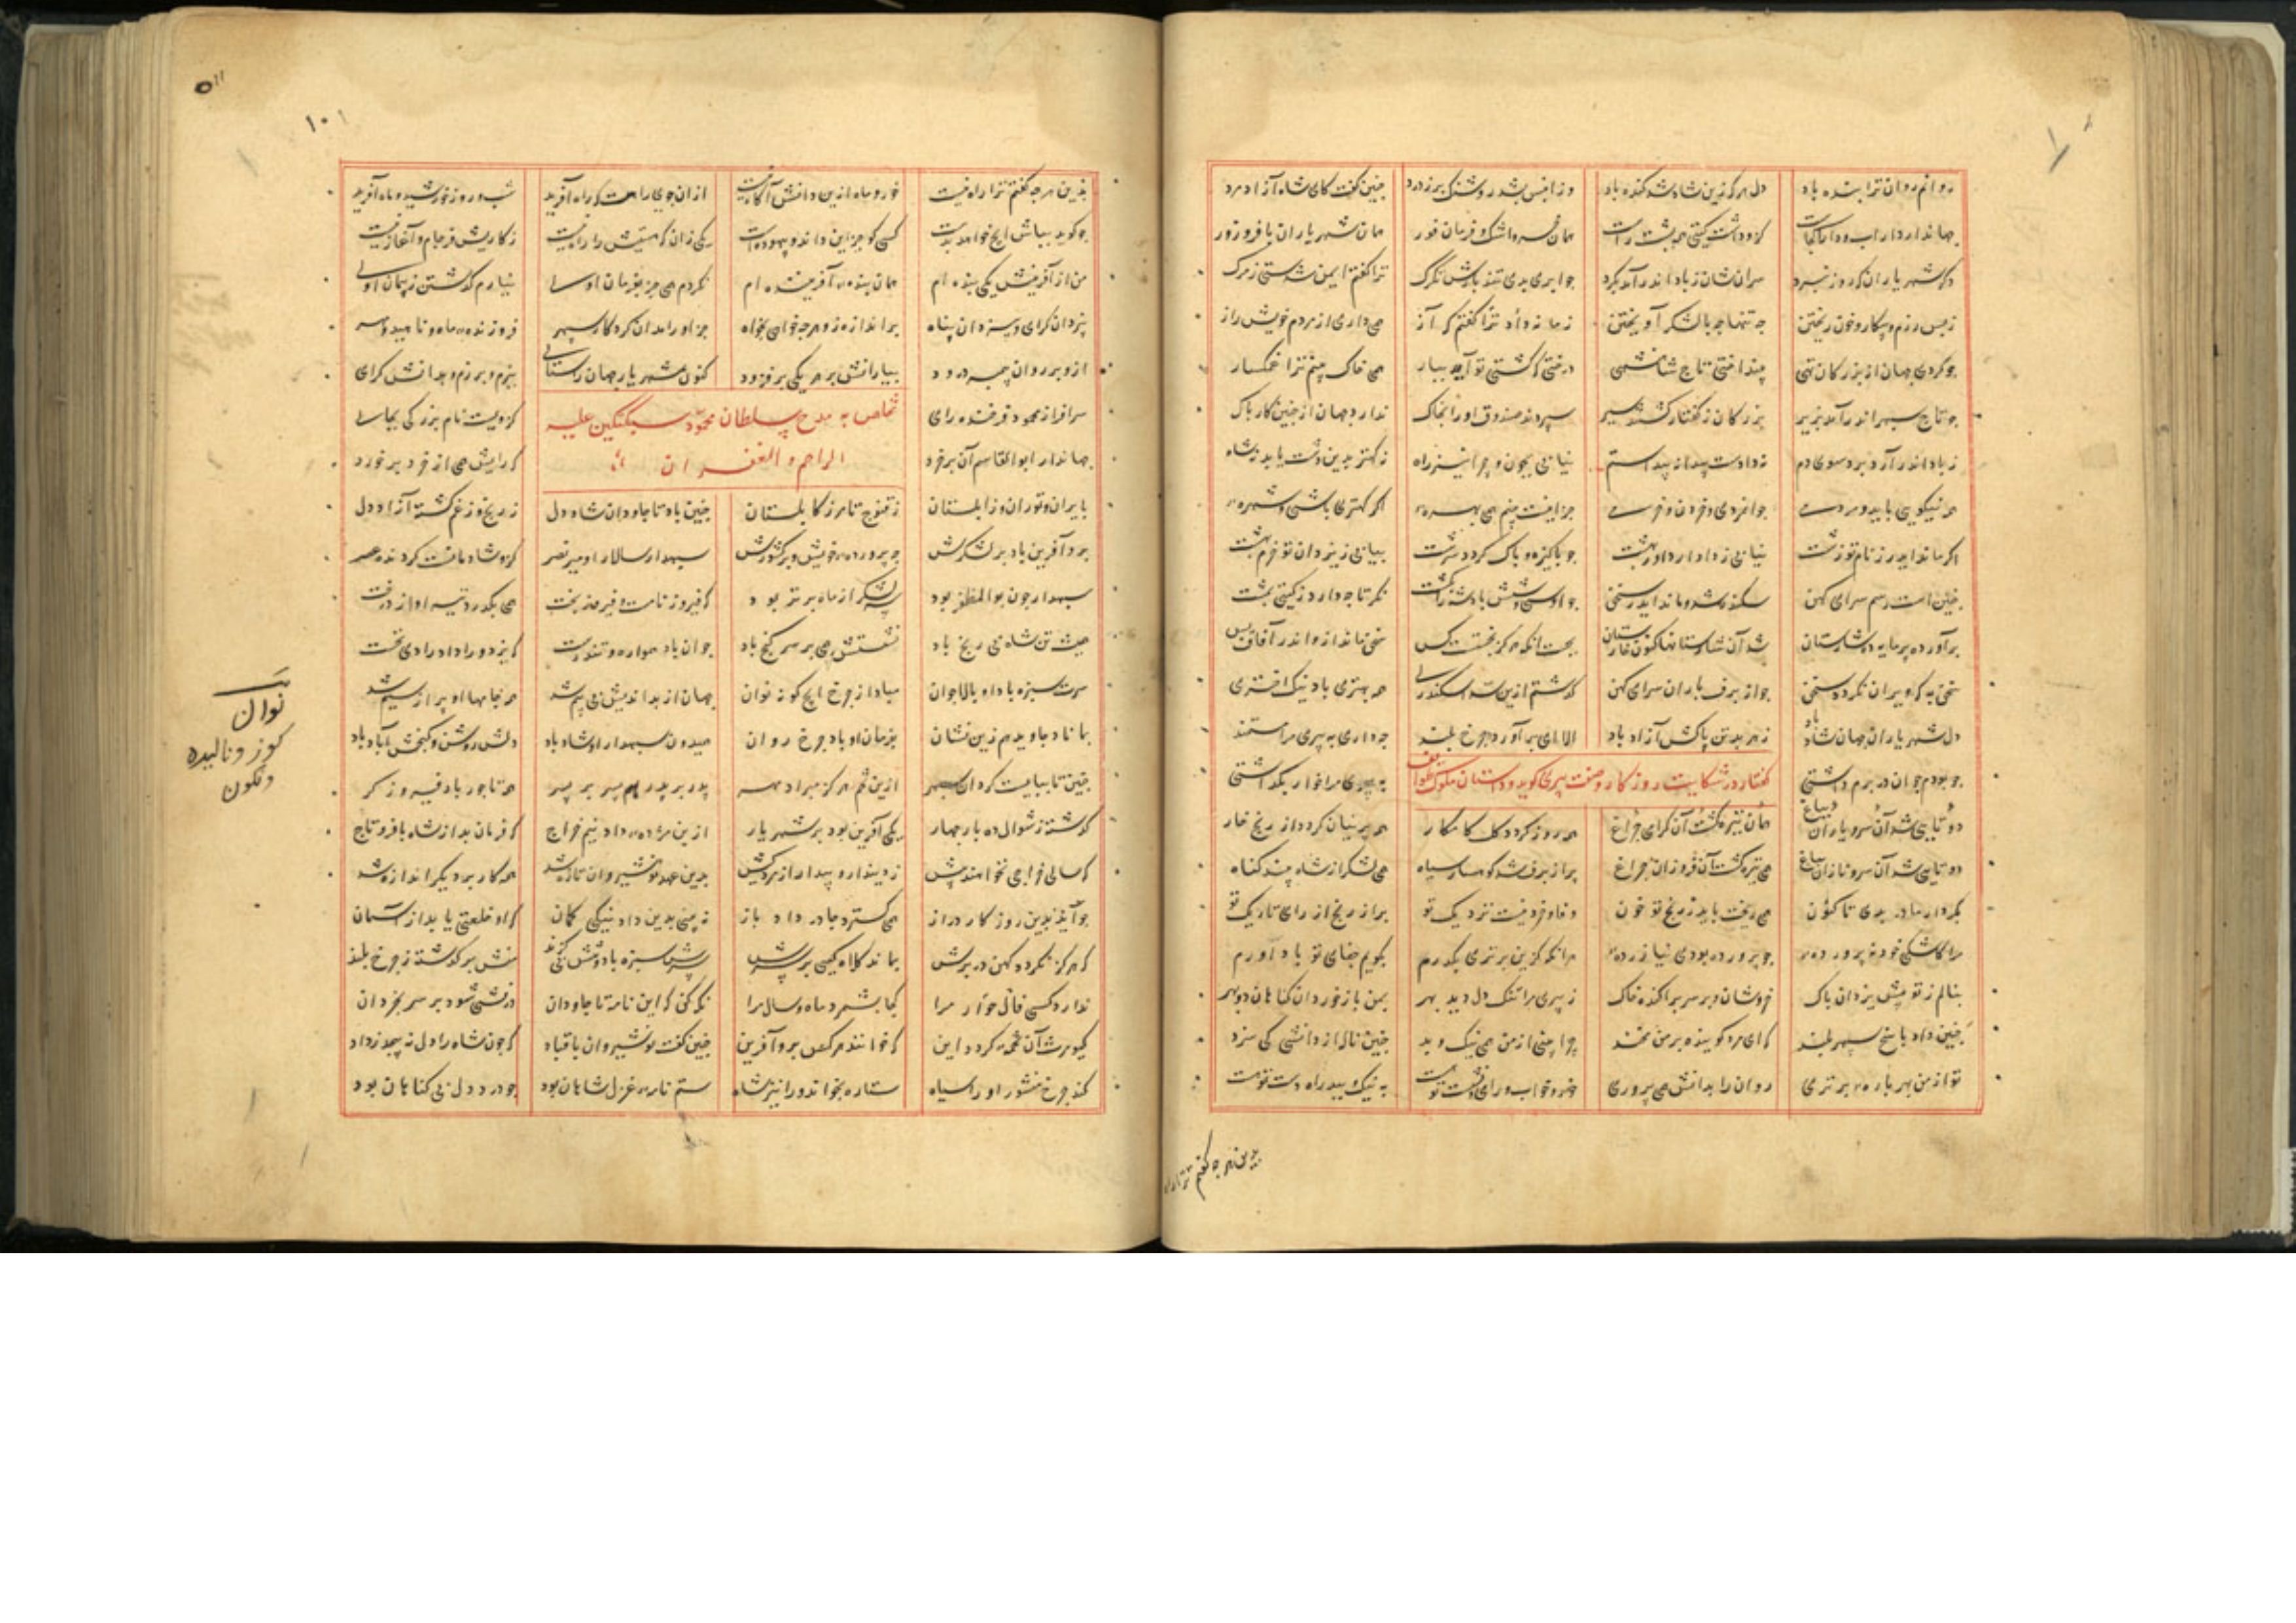 روانم روان ترا بنده باد دل هر کزین شاد شد کنده باد وزانپس بشد روشنک پر ز درد چنین گفت کای شاه آزاد مرد
جهاندار داراب و دارا کجاست کزو داشت گیتی همی پشت راست همان خسرو و اشک و فرمان فور همان شهریاران با فر و زور
دگر شهریاران که روز نبرد سران شان ز باد اندر آمد بگرد چو ابری بدی تند بارش تگرگ ترا گفتم ایمن شدستی ز مرگ
ز بس رزم و پیکار و خون ریختن چه تنها چه با لشکر آویختن زمانه داد ترا گفتم که آز همی داری از مردم خویش راز
چو کردی جهان از بزرگان تهی بینداختی تاج شاهنشهی درختی که کشتی تو آمد ببار همی خاک بینم ترا غمگسار
چو تاج سپهر اندر آمد بزیر بزرگان ز گفتار گشتند سیر سپردند صندوق او را بخاک ندارد جهان از چنین کار باک
ز باد اندر آرد برد سوی دم نه دادست پیدا نه پیدا ستم نیابی بچون و چرا نیز راه نه کهتر بدین دست یابد نه شاه
همه نیکویی باید و مردمی جوانمردی و خوردن و خرمی جز اینت نبینم همی بهره اگر کهتری باشی و شهره
اگر ماند ایدر ز تو نام زشت نیابی ز دادار دادر بهشت
چنین است رسم سرای کهن سکندر شد و ماند ایدر سخن چو او سی و شش پادشه را بکشت نگر تا چه دارد ز گیتی بمشت
برآورد پرمایه ده شارستان شد آن شارستانها کنون خارستان بجست آنکه هرگز نجستست کس سخن ماند ازو اندر آفاق و بس
سخن به که ویران نگردد سخن چو از برف و باران سرای کهن گذشتم ازین سد اسکندری همه بهتری باد نیک اختری
دل شهریار جهان شاد باد ز هر بد تن پاکش آزاد باد الا ای برآورده چرخ بلند چه داری به پیری مرا مستمند
گفتار در شکایت روزگار و صفت پیری گوید و داستان ملوک طوایف
چو بودم جوان در برم داشتی به پیری مرا خوار بگذاشتی
همی زرد گردد گل کامکار همی پرنیان گردد از رنج خار
دو تایی شد آن سرو نازان بباغ همی تیره گشت آن فروزان چراغ پر از برف شد کوهسار سیاه همی لشکر از شاه بیند گناه
بکردار مادر بدی تا کنون همی ریخت باید ز رنج تو خون وفا و خرد نیست نزدیک تو پر از رنجم از رای تاریک تو
مرا کاشکی خود نپرورده چو پرورده بودی نیازرده هرانگه کزین برتری بگذرم بگویم جفای تو با داورم
بنالم ز تو پیش یزدان پاک خروشان و بر سر پراکنده خاک ز پیری مرا تنگ دل دید بهر بمن باز خوردان گناهان دو بهر
چنین داد پاسخ سپهر بلند که ای مرد گوینده بر من مخند چرا بینی از من همی نیک و بد چنین ناله از دانشی کی سزد
تو از من بهر باره برتری روان را بدانش همی پروری خور و خواب و رای نشست تو هست به نیک و ببد راه دست تو هست
بدین هر چه گفتم ترا راه
۱۰۱
۵۱۱
بدین هر چه گفتم ترا راه نیست خور و ماه ازین دانش آگاه نیست از آن جوی راهت که راه آفرید شب و روز و خورشید و ماه آفرید
چو گوید بباش آنچه خواهد بدست کسی کو جز این داند بیهدست یکی زان که هستیش را راز نیست ز کاریش فرجام و آغاز نیست
من از آفرینش یکی بنده ام همان بنده آفریننده ام نگردم همی جز بفرمان اوی نیارم گذشتن ز پیمان اوی
بیزدان گرای و بیزدان پناه بر اندازه زو هر چه خواهی بخواه جز او را مدان کردگار سپهر فروزنده ماه و ناهید و مهر
ازو بر روان پیمبر درود بیارانش بر هر یکی برفزود کنون شهریار جهان را ستای ببزم و برزم و بدانش گرای
سرافراز محمود فرخنده رای کزویست نام بزرگی بجای
تخلص به مدح سلطان محمود سبکتگین علیه
الراحم و الغفران
جهاندار ابوالقاسم آن پر خرد که رایش همی از خرد برخورد
بایران و توران و زابلستان ز قنوج تا مرز کابلستان چنین باد تا جاودان شاد دل ز رنج و ز غم گشته آزاد دل
برو آفرین باد بر لشکرش چو پرورده خویش و بر کشورش سپهدار سالار او میر نصر کزو شادمان گردنده عصر
سپهدار چون بوالمظفر بود سر لشکر از ماه برتر بود که فیروز نامست و فیروز بخت همی بگذرد تیر او از درخت
همیشه تن شاه بی رنج باد نشستش همی بر سر گنج باد جوان باد همواره و تندرست
سرت سبزه باد او بالا جوان مباد از چرخ ایچ گونه نوان جهان از بد اندیش بی بیم شد همه جامها او پر از سیم شد
بماناد جاوید هم زین نشان بفرمان او باد چرخ روان همیدون سپهدار او شاد باد دلش روشن و گنجش آباد باد
چنین تا بپایست گردان سپهر ازین تخم هرگز مبراد مهر پدر بر پدر هم پسر بر پسر همه تاجور باد و فیروزگر
گذشته ز شوال ده با چهار یکی آفرین بود بر شهریار ازین مژده داد نیم خراج که فرمان بد از شاه با فر و تاج
که سالی خراجی نخواهند پیش ز دیندار و بیدار از مرد کیش بدین عهد نوشیروان تازه شد همه کار بر دیگر اندازه شد
چو آید بدین روزگار دراز همی گسترد چادر داد باز ببینی بدین داد نیکی گمان که او خلعتی یابد از آسمان
که هرگز نگردد کهن در برش بماند کلاه کیی بر سرش سرش سبزه باد و تنش بی گزند منش برگذشته ز چرخ بلند
ندارد کسی فال خوار مرا کجا بشمرد ماه و سال مرا نگه کن که این نامه تا جاودان درفشی شود بر سر بخردان
که خوانند هر کس برو آفرین چنین گفت نوشیروان با قباد که چون شاه را دل بپیچد ز داد
کند چرخ منشور او را سیاه ستاره نخواند ورا نیز شاه ستم نامه عزل شاهان بود چو درد دل بی گناهان بود
نوان
کوز و نالیده
و نگون